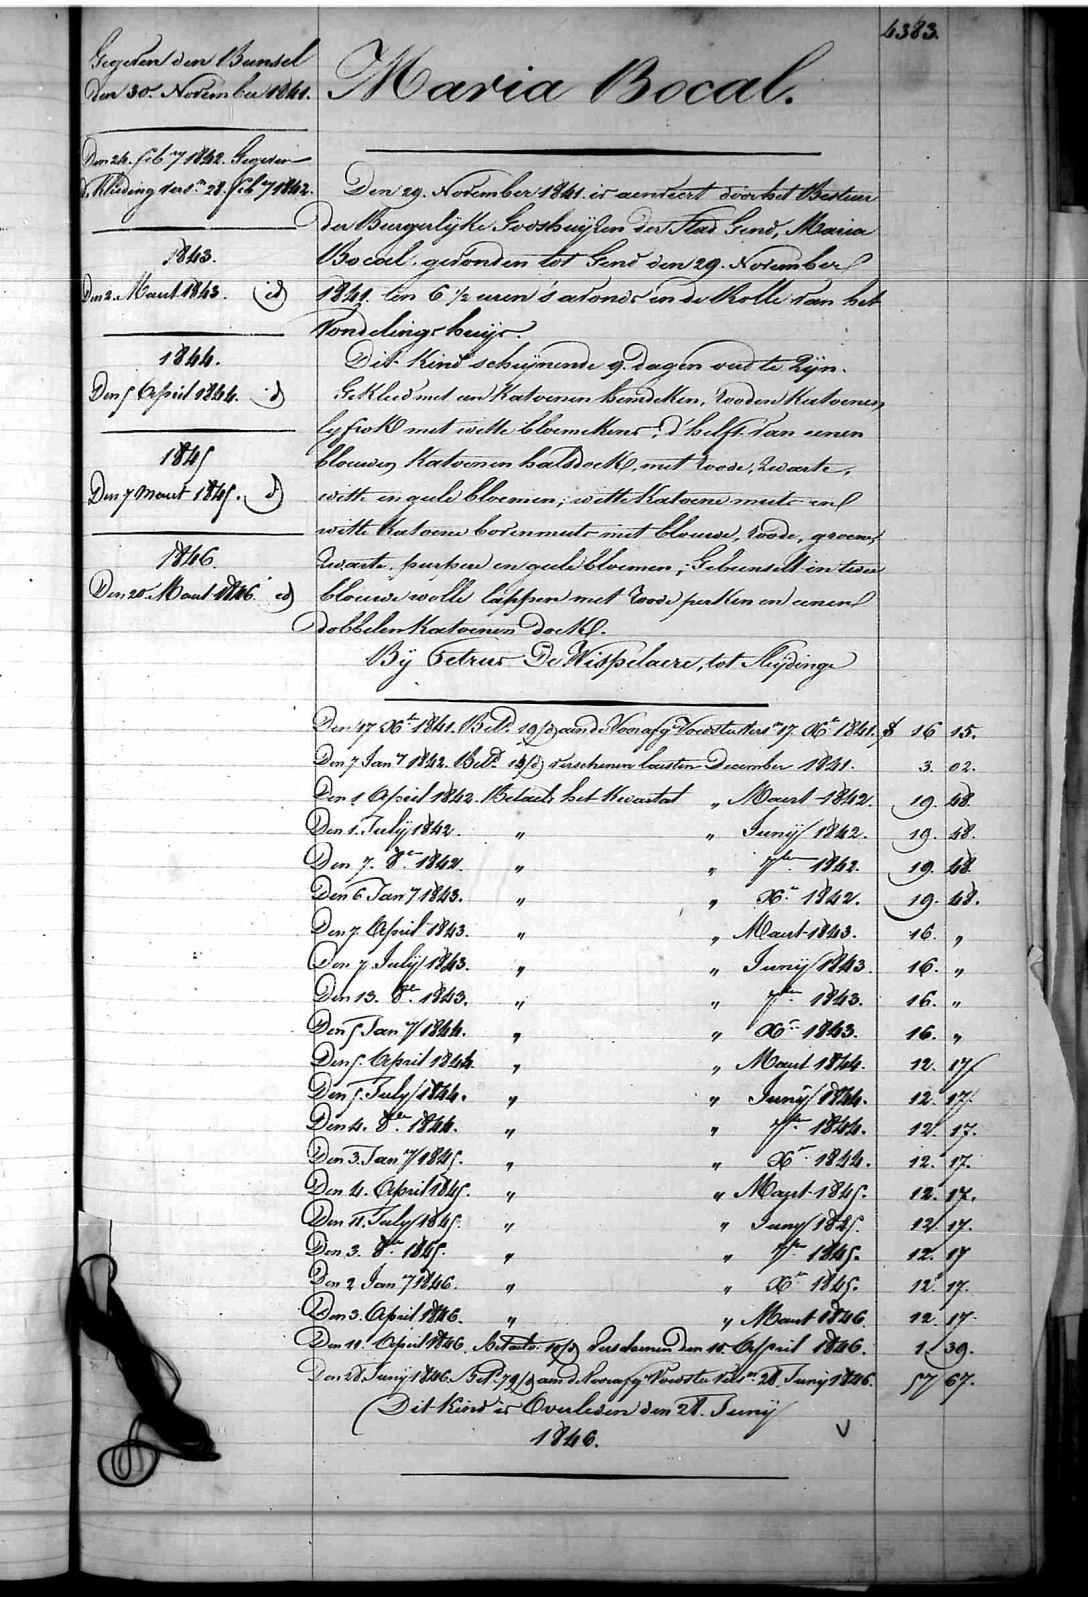 4383.
Gegeven den Bunsel
den 30. November 1841.
Den 24. feb 7 1842. Gegeven
d. Kleeding vers.n 28. feb 7 1842.
1843.
Den 2. Maart 1843. id
1844.
Den 5 April 1844. id
1845
Den 7 Maart 1845. id
1846.
Den 20. Maart 1846. id
Maria Bocal.
Den 29. November 1841. is aenveert door het Bestier
der Burgerlyke Godshuyzen der Stad Gend, Maria
Bocal. gevonden tot Gend den 29. November
1841. ten 6 1/2 uren 's avonds in de Rolle van het
Vondelingshuys.
Dit Kind schynende 9. dagen oud te Zyn.
Gekleed met een Katoenen hemdeken, rooden Katoenen
lyfrok met witte bloemekens, d'helft van eenen
blouwen Katoenen halsdoek, met roode, zwarte,
witte en geele bloemen; witte Katoene muts en
witte Katoene bovenmuts met blouwe, roode, groene,
zwarte, purpere en geele bloemen; Gebunselt in twee
blouwe wolle lappen met roode perken en eenen
dobbelen Katoenen doek.
By Petrus De Wispelaere, tot Sleydinge
Den 17 Xb 1841. Bet.d 19/d aen de Voorafg.e Voedster vers.n 17. Xb 1841. 16 15.
Den 7 Jan 7 1842. Bet.d verschenen laesten December 1841. 3. 02.
Den 1 April 1842. Betaelt het Kwartael „ Maert 1842. 19. 48.
Den 1. July 1842. „ „ Juny 1842. 19. 48.
Den 7. 8b 1842. „ „ 7b 1842. 19. 48
Den 6 Jan 7 1843. „ „ Xb 1842. 19. 48.
Den 7. April 1843. „ „ Maert 1843. 16. „
Den 7 July 1843. „ „ Juny 1843. 16. „
Den 13. 8b 1843. „ „ 7b 1843. 16. „
Den 5 Jan 7 1844. „ „ Xb 1843. 16. „
Den 5. April 1844. „ „ Maert 1844. 12. 17
Den 5. July 1844. „ „ Juny 1844. 12. 17.
Den 4. 8b 1844. „ „ 7b 1844. 12. 17.
Den 3. Jan 7 1845. „ „ Xb 1844. 12. 17.
Den 4. April 1845. „ „ Maert 1845. 12. 17.
Den 11. July 1845. „ „ Juny 1845. 12. 17.
Den 3. 8b 1845. „ „ 7b 1845. 12. 17
Den 2 Jan 7 1846. „ „ Xb 1845. 12. 17.
Den 3. April 1846. „ „ Maert 1846. 12. 17.
Den 10. April 1846. Betaelt 10/d verschenen den 10. April 1846. 1. 39.
Den 28. Juny 1846. Bet.d 79/d aen d Voorafg.e Voedster vers.n 28. Juny 1846. 57 67.
Dit Kind is Overleden den 28. Juny
1846.